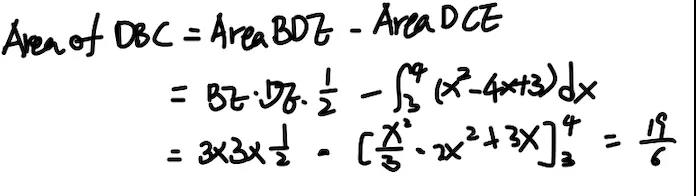 Area of DBC = Area BDE - Area DCE
= BE · DE · 1/2 - ∫₃⁴ (x²-4x+3) dx
= 3×3×1/2 - [x³/3 - 2x² + 3x]₃⁴ = 19/6